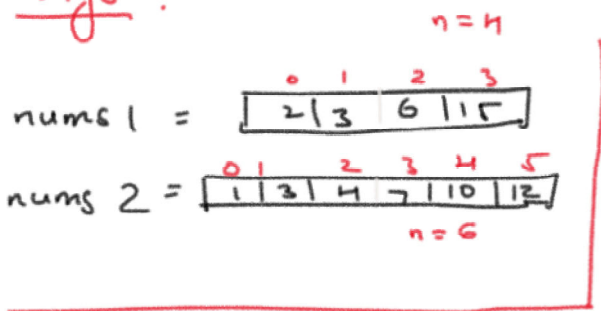 n = 4
0 1 2 3
nums 1 = 2 3 6 15
0 1 2 3 4 5
nums 2 = 1 3 4 7 10 12
n = 6